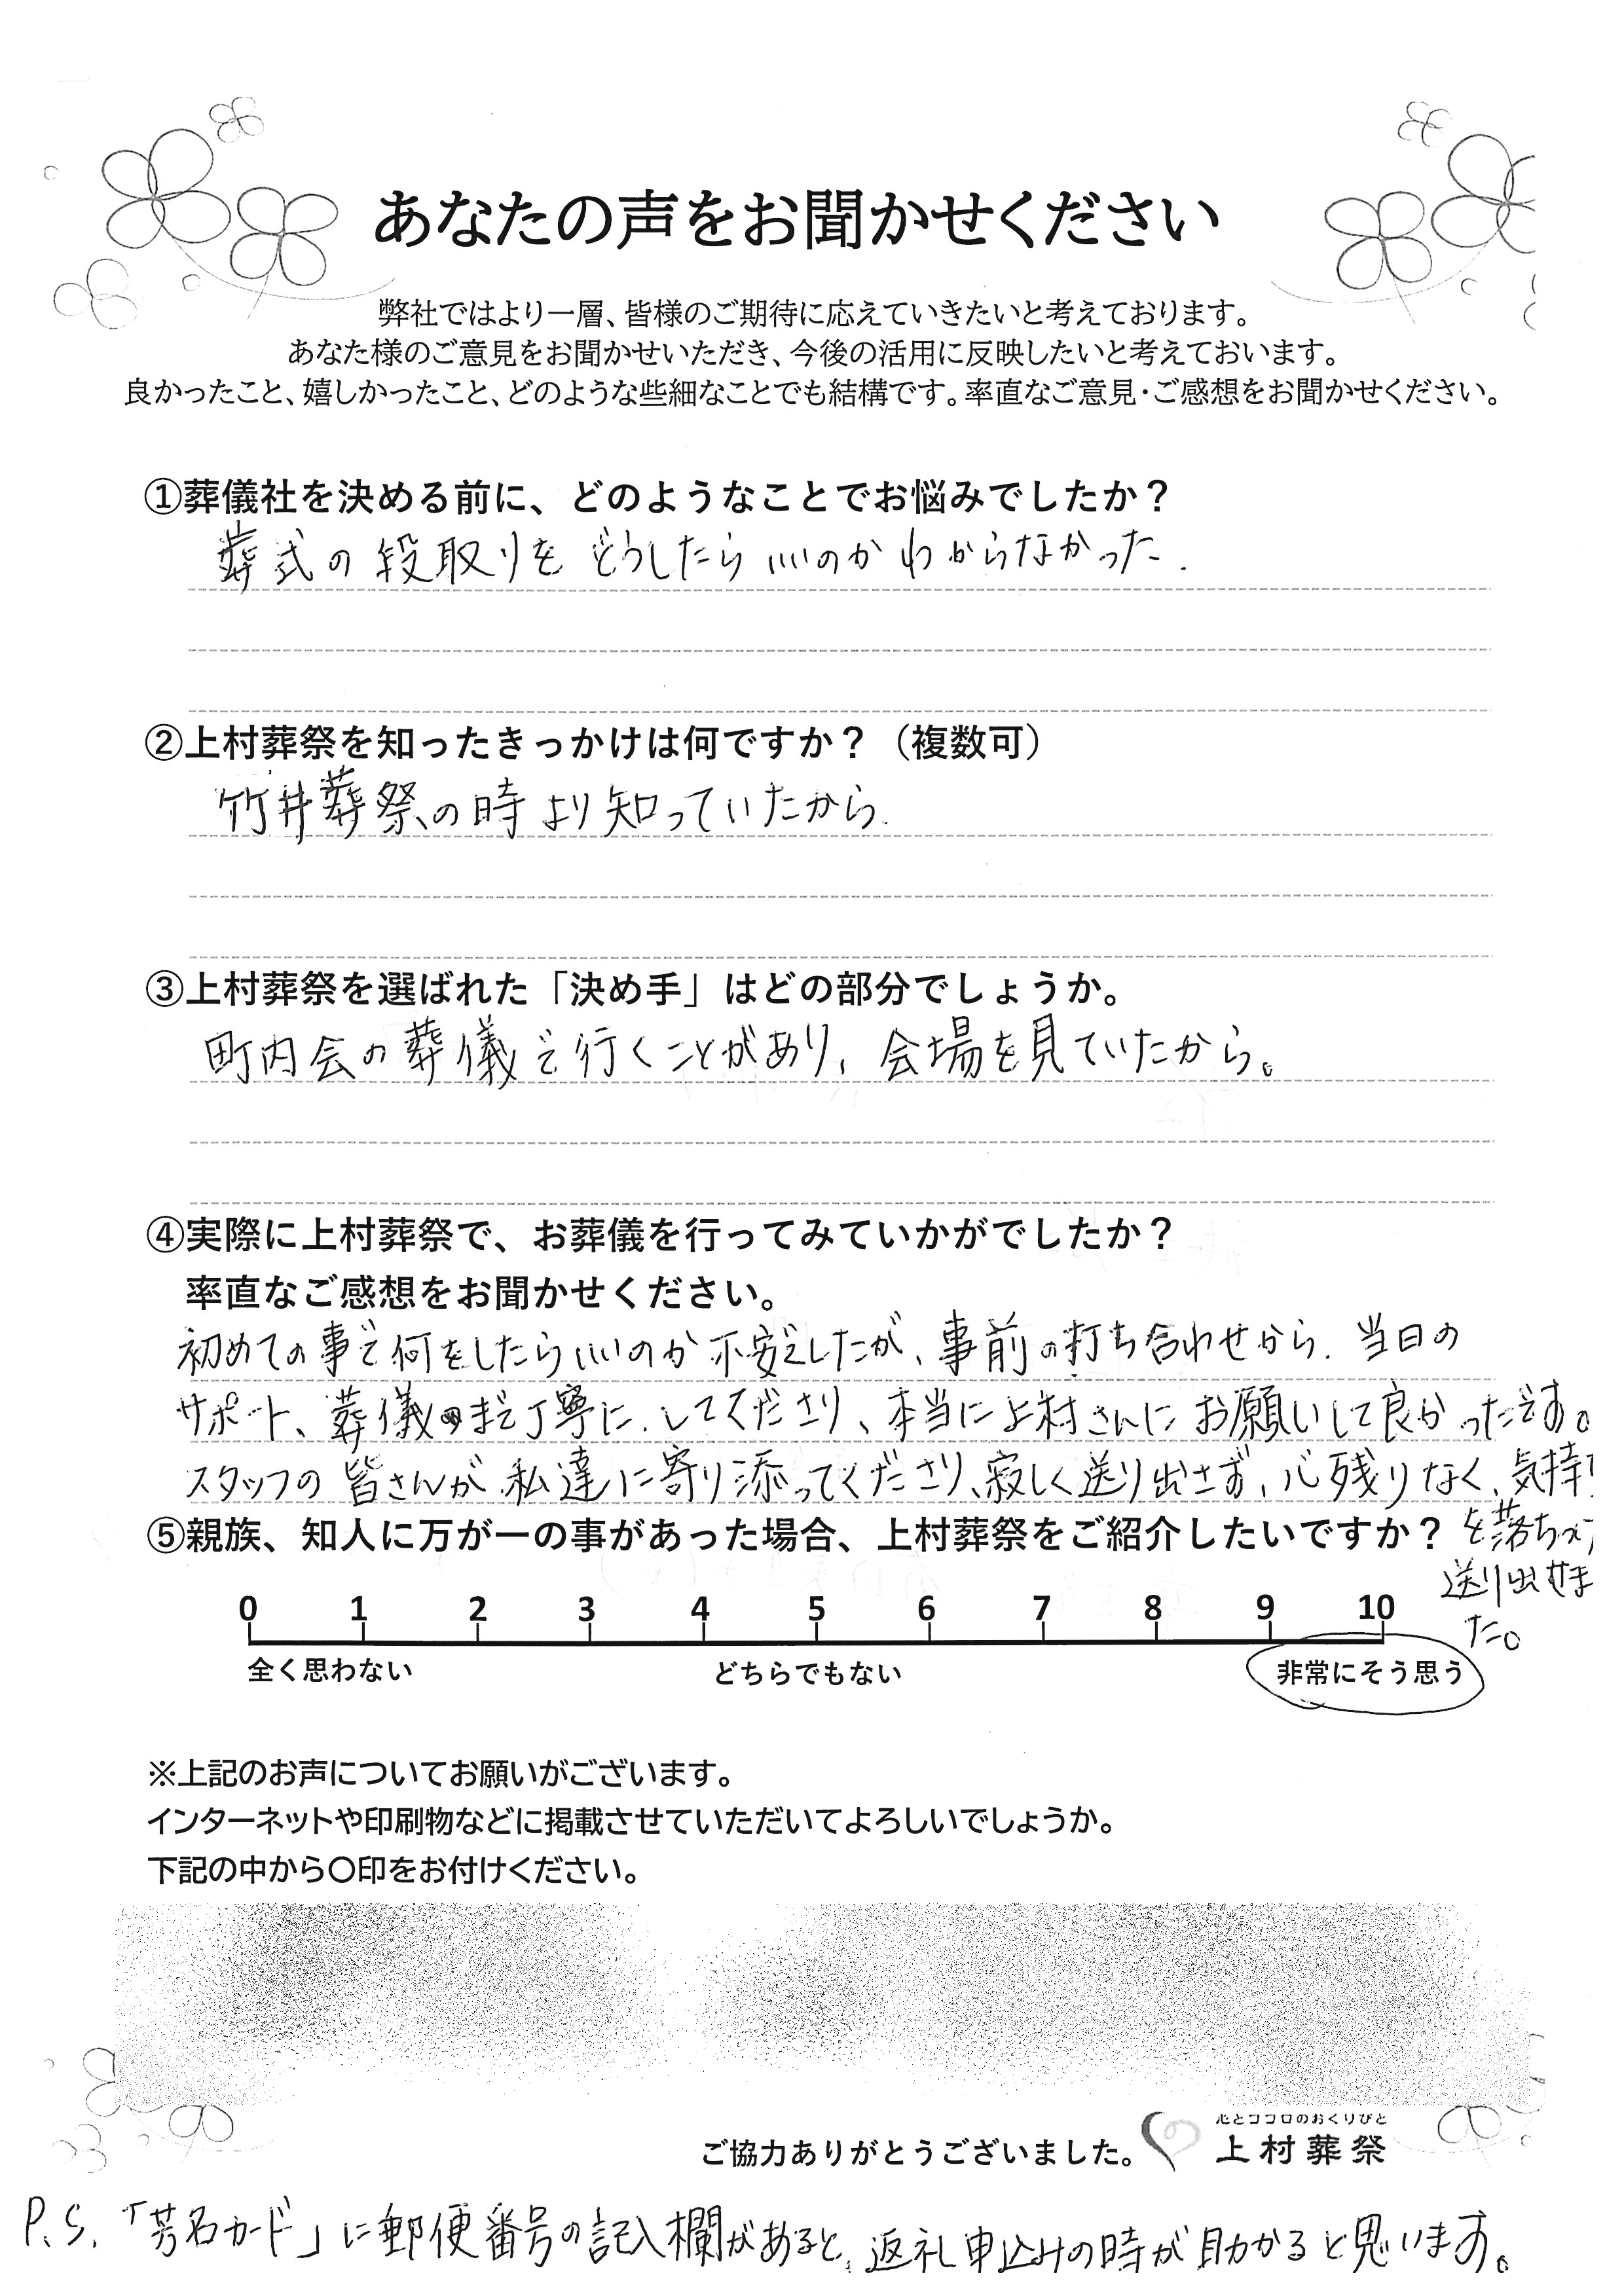 あなたの声をお聞かせください
弊社ではより一層、皆様のご期待に応えていきたいと考えております。
あなた様のご意見をお聞かせいただき、今後の活用に反映したいと考えておいます。
良かったこと、嬉しかったこと、どのような些細なことでも結構です。率直なご意見・ご感想をお聞かせください。
①葬儀社を決める前に、どのようなことでお悩みでしたか？
葬式の段取りをどうしたらいいのかわからなかった.
②上村葬祭を知ったきっかけは何ですか？（複数可）
竹井葬祭の時より知っていたから.
③上村葬祭を選ばれた「決め手」はどの部分でしょうか。
町内会の葬儀で行くことがあり、会場を見ていたから。
④実際に上村葬祭で、お葬儀を行ってみていかがでしたか？
率直なご感想をお聞かせください。
初めての事で何をしたらいいのか不安でしたが、事前の打ち合わせから、当日の
サポート、葬儀まで丁寧に.してくださり、本当に上村さんにお願いして良かったです。
スタッフの皆さんが私達に寄り添ってくださり、寂しく送り出さず、心残りなく、気持ち
を落ちつ
送り出せま
た。
⑤親族、知人に万が一の事があった場合、上村葬祭をご紹介したいですか？
0 1 2 3 4 5 6 7 8 9 10
全く思わない どちらでもない 非常にそう思う
※上記のお声についてお願いがございます。
インターネットや印刷物などに掲載させていただいてよろしいでしょうか。
下記の中から〇印をお付けください。
ご協力ありがとうございました。
心とココロのおくりびと
上村葬祭
P.S.「芳名カード」に郵便番号の記入欄があると、返礼申込みの時が助かると思います。